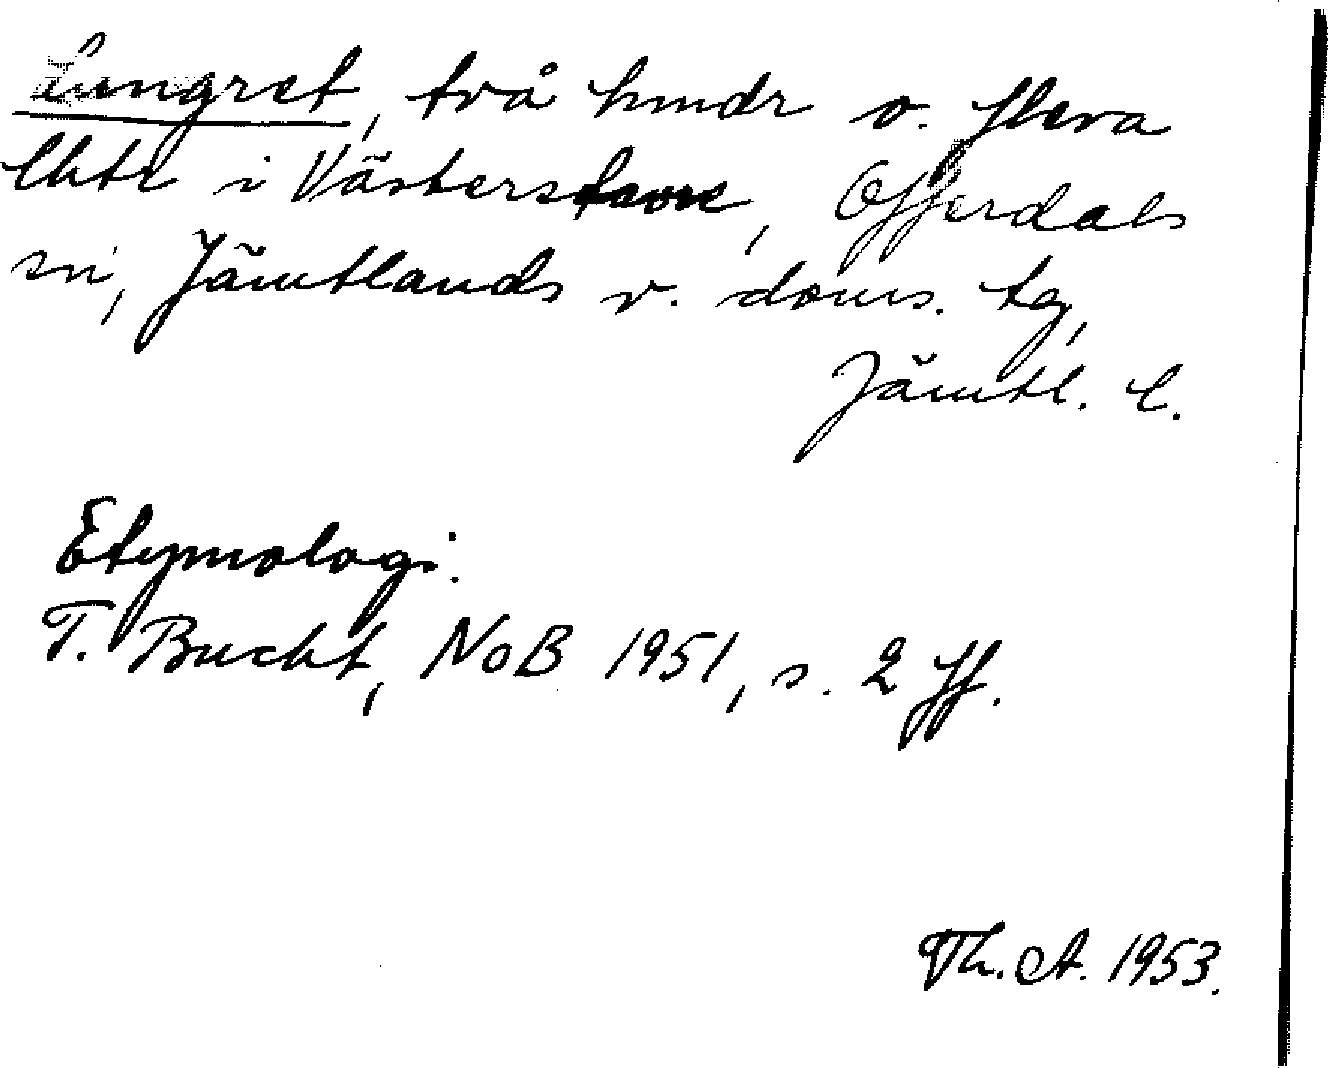 Lungret, två hmdr o. flera
lhtr i Västerstavre, Offerdals
sn, Jämtlands v. doms. tg,
Jämtl. l.
Etymologi.
T. Bucht, NoB 1951, s. 2 ff.
Th. A. 1953.